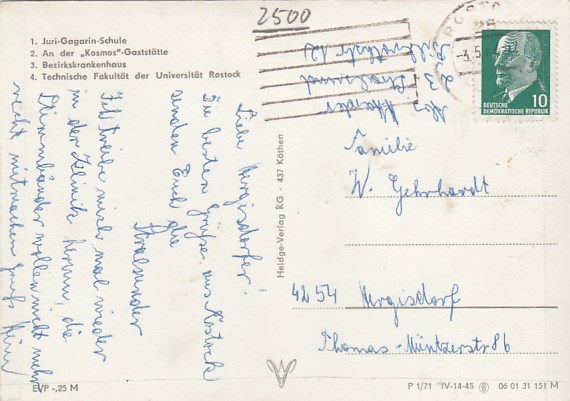 2500
1. Juri-Gagarin-Schule
2. An der „Kosmos"-Gaststätte
3. Bezirkskrankenhaus
4. Technische Fakultät der Universität Rostock
Liebe Wergisdorfer!
Die besten Grüße aus Rostock
senden Euch die
Stralsunder
Ich treibe mich mal wieder
in der Klinik herum, die
Stimmbänder wollen nicht mehr
recht mitmachen
EVP -,25 M
Heldge-Verlag KG · 437 Köthen
23 Stralsund
DEUTSCHE
DEMOKRATISCHE REPUBLIK
10
Familie
W. Gehrhardt
4254 Wergisdorf
Thomas-Müntzerstr 86
P 1/71 IV-14-45 06 01 31 151 M